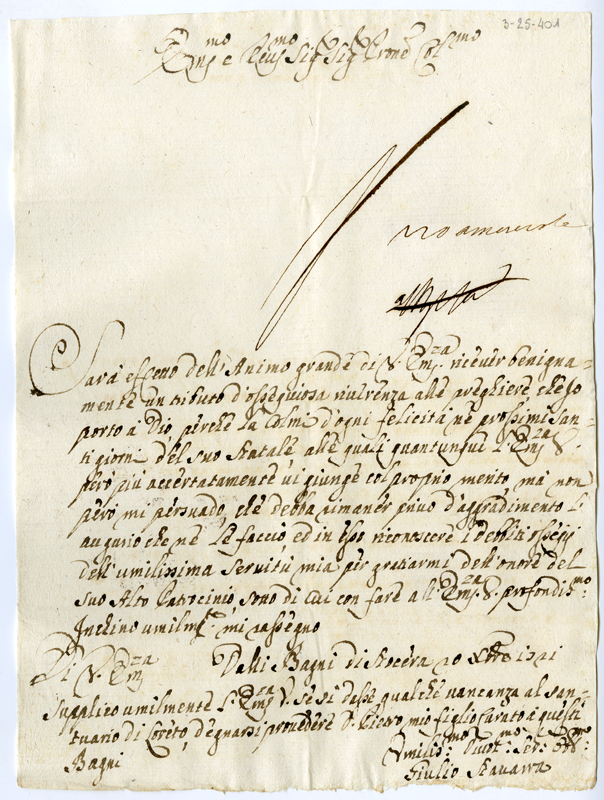 3-25-401
Em.mo e Reu.mo Sig.r Sig.r Prone Col.mo
no amoreuole
Sarà effetto dell'Animo grande di V. Em.za riceuer benigna=
mente un tributo d'ossequiosa riuerenza alle preghiere, che Io
porto à Dio perche la Colmi d'ogni felicità nè prossimi San=
ti giorni del suo Natale alle quali quantunque l'Em.za S.
però più accertatamente ui giunge col proprio merito, mà non
però mi persuado, che debba rimaner priuo d'aggradimento l'
augurio che nè Le faccio ed in esso riconoscere i debiti ossequij
dell'umilissima Seruitù mia per gratiarmi dell'onore del
suo Alto Patrocinio, sono di cui con fare all'Em.za S. profondiss.mo
Inchino umilm.te mi rassegno
Di V. Em.za Dalli Bagni di Nocera 20 Xbre 1721
Supplico umilmente l'Em.za V. se si dasse qualche uacanza al San=
tuario di Loreto, degnarsi prouedere D. Pietro mio figlio Curato à questi
Bagni
Umiliss.mo Diuot.mo Ser. Obb.mo
Giulio Nauarra